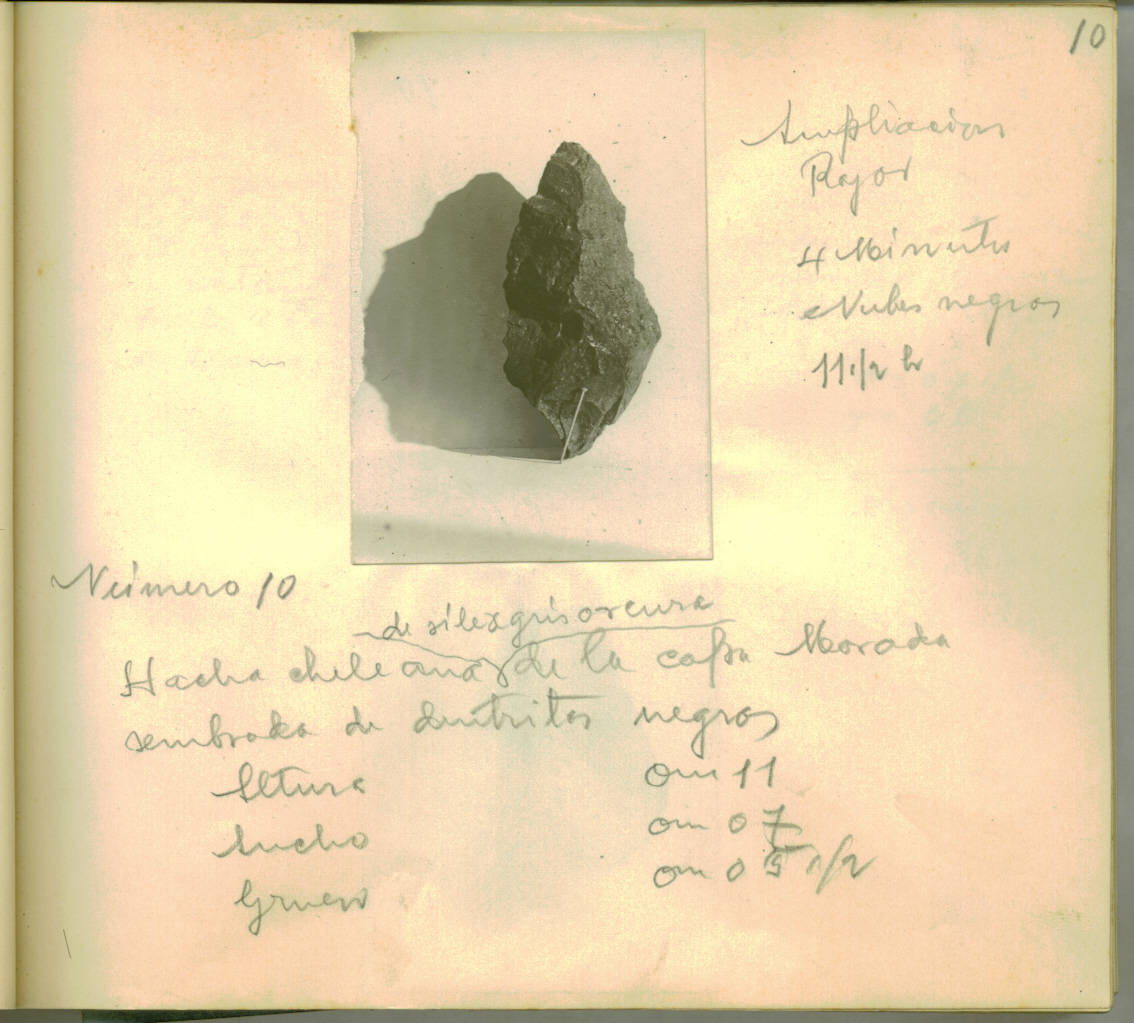 10
Ampliacion
Rajos
4 Minutos
Nubes negras
11 1/2 h
Número 10
de silex gris oscura
Hacha chileana de la capa Morada
sembrada de dentritas negras
Altura 0m 11
Ancho 0m 07
Grueso 0m 05 1/2